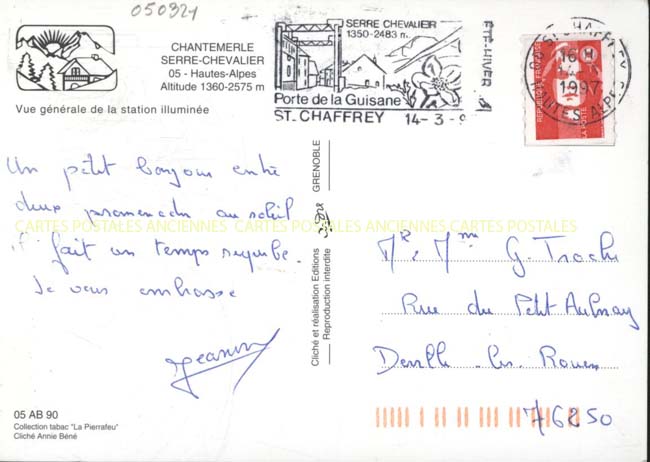 050321
CHANTEMERLE
SERRE-CHEVALIER
05 - Hautes-Alpes
Altitude 1360-2575 m
Vue générale de la station illuminée
SERRE CHEVALIER
1350-2483 m.
Porte de la Guisane
ST. CHAFFREY
ETE-HIVER
14-3-9
16 H
1997
HAUTES-ALPES
REPUBLIQUE FRANÇAISE
LA POSTE
Un petit bonjour entre
deux promenades au soleil
il fait un temps superbe.
Je vous embrasse
CARTES POSTALES ANCIENNES CARTES POSTALES ANCIENNES CARTES POSTALES
Cliché et réalisation Editions
GRENOBLE
Reproduction interdite
Mr & Mme G.
Rue du Petit Aulnay
Deville les Rouen
76250
05 AB 90
Collection tabac "La Pierrafeu"
Cliché Annie Béné